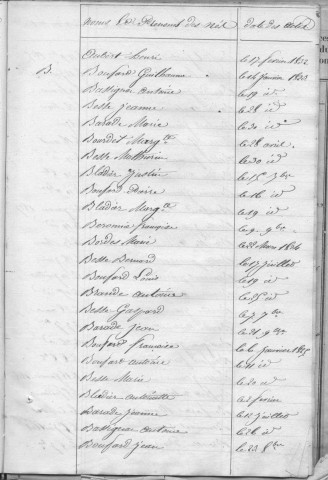 noms et Prénoms des nés date des actes
Autert Louis le 17 février 1822
B.
Bonfard Guillaume le 16 février 1823
Bessignac Antoine le 19 id
Besse Jeanne le 28 id
Barade Marie le 30 id
Bourdet Marg.te le 28 avril
Besse Mathurin le 30 id
Bladier Justin le 15 7bre
Bonfard Pierre le 16 id
Bladier Marg.te le 19 id
Baronnie françoise le 9 9bre
Bordes Marie le 22 Mars 1824
Besse Bernard le 17 juillet
Bonfard Louis le 19 id
Brande Antoine le 25 id
Besse Gaspard le 7 7bre
Barade Jean le 21 9bre
Bonfard françoise le 6 janvier 1825
Bonfard Antoine le 11 id
Besse Marie le 20 id
Bladier Antoinette le 2 février
Barade Jeanne le 12 juillet
Bessignac Antoine le 26 id
Bonfard Jean le 23 8bre